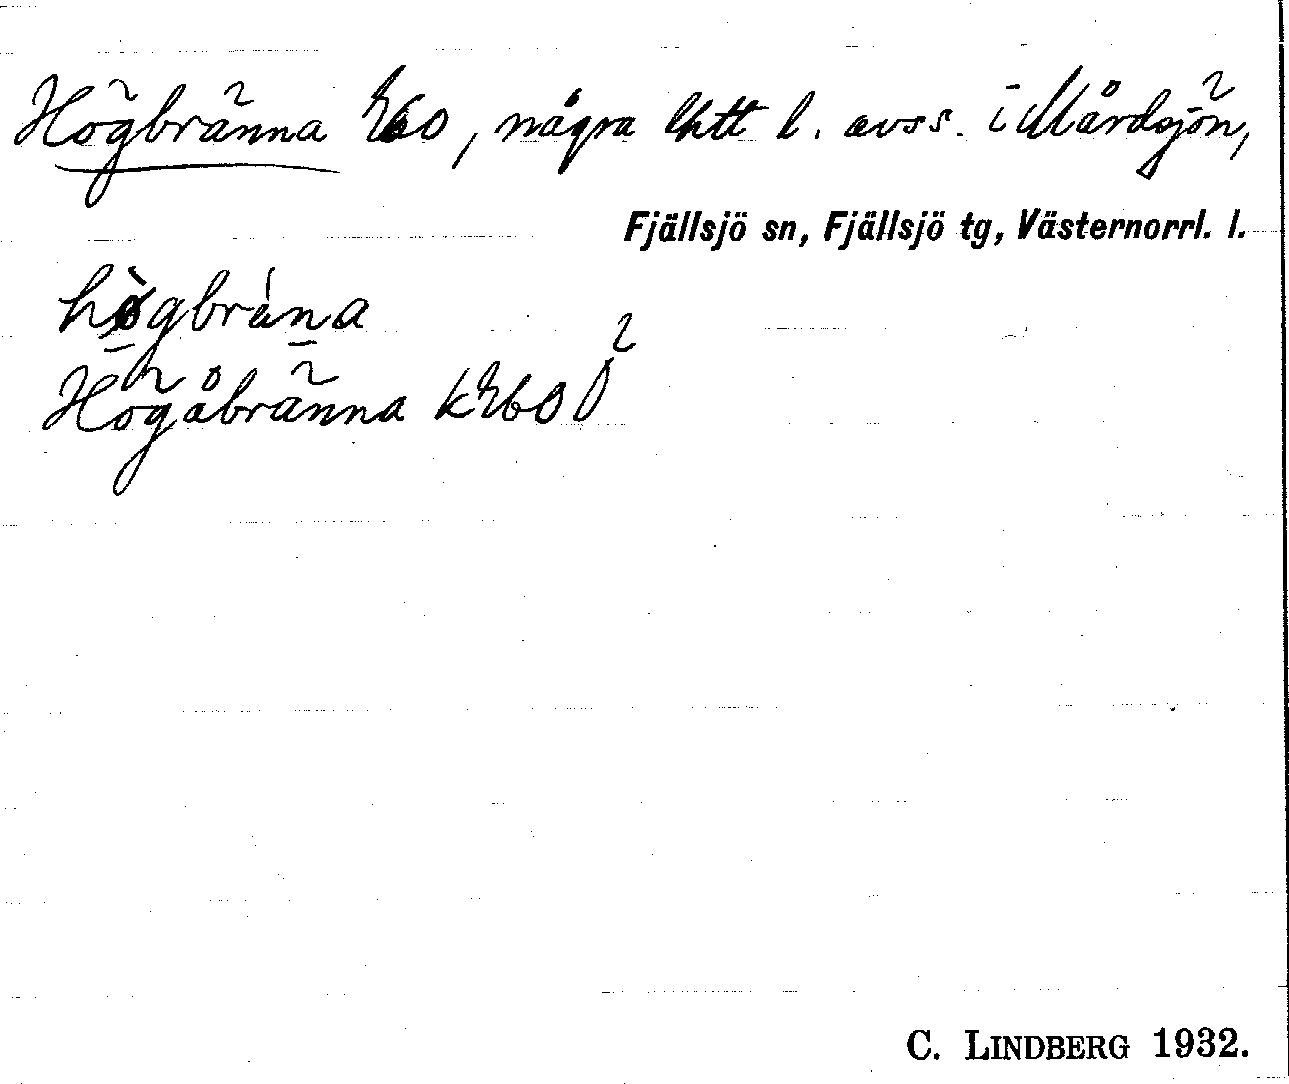 Högbränna Ebo, några lhtt l. avss. i Mårdsjön,
Fjällsjö sn, Fjällsjö tg, Västernorrl. l.
hø̀gbrána
Högåbränna kEbo Ö
C. LINDBERG 1932.